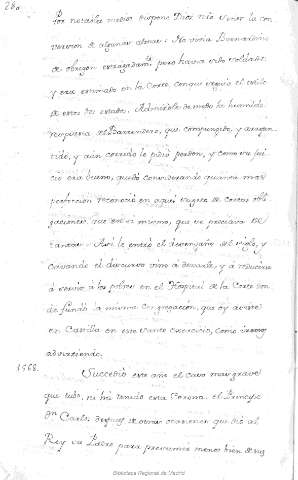 280
Por notables medios dispone Dios nro Señor la con
version de algunas almas: No vivia Bernardino
de obregon estragadamte pero havia sido soldado
y era estimado en la Corte, conque seguia el estilo
de entrambos estados. Admirole de modo la humilde
respuesta el Barrendero, que compungido, y arrepen
tido, y aun corrido le pidio perdon, y como su jui
cio era bueno, quedò considerando quanta mas
perfeccion reconocia en aquel sugeto de cortas obli
gaciones, que en si mismo, que se preciava de
tantas. Asi le entrò el desengaño del siglo, y
cavando el discurso vino à dexarle, y à reducirse
à servir à los pobres en el Hospital de la Corte don
de fundò la minima congregacion, que oy asiste
en Castilla en este santo exercicio, como iremos
advirtiendo.
1568. Succedió este año el caso mas grave
que tubo, ni ha tenido esta Corona. el Principe
dn Carlos, despues de otras ocasiones que diò al
Rey su Padre para presumir menos bien de sus
Biblioteca Regional de Madrid